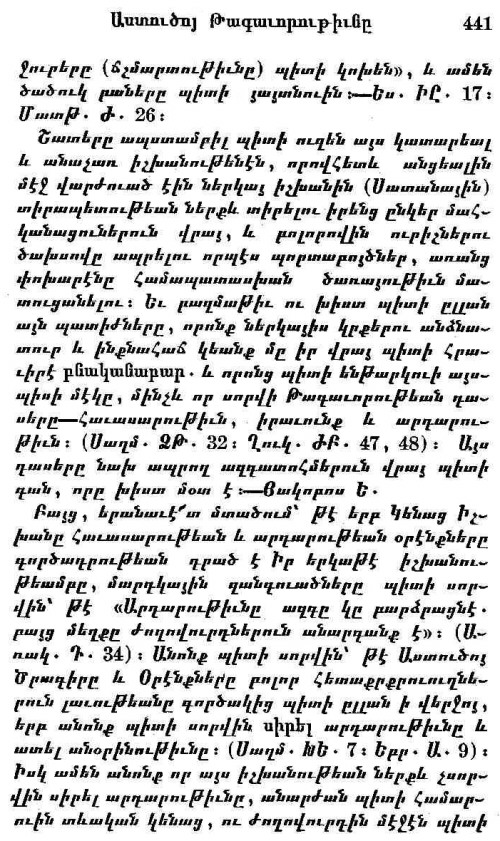 Աստուծոյ Թագաւորութիւնը 441
ջուրերը (ճշմարտութիւնը) պիտի կոխեն», և ամեն
ծածուկ բաները պիտի յայտնուին։—Ես․ ԻԸ․ 17։
Մատթ․ Ժ․ 26։
Շատերը ապստամբիլ պիտի ուզեն այս կատարեալ
և անաչառ իշխանութենէն, որովհետև անցեալին
մէջ վարժուած էին ներկայ իշխանին (Սատանային)
տիրապետութեան ներքև տիրելու իրենց ընկեր մահ-
կանացուներուն վրայ, և բոլորովին ուրիշներու
ծախսովը ապրելու որպէս պորտաբոյծներ, առանց
փոխարէնը համապատասխան ծառայութիւն մա-
տուցանելու։ Եւ բազմաթիւ ու խիստ պիտի ըլլան
այն պատիժները, որոնք ներկայիս կրքերու անձնա-
տուր և ինքնահաճ կեանք մը իր վրայ պիտի հրա-
ւիրէ բնականաբար․ և որոնց պիտի ենթարկուի այս-
պիսի մէկը, մինչև որ սորվի Թագաւորութեան դա-
սերը—հաւասարութիւն, իրաւունք և արդարու-
թիւն։ (Սաղմ․ ՁԹ․ 32։ Ղուկ․ ԺԲ․ 47, 48)։ Այս
դասերը նախ ապրող ազգատոհմերուն վրայ պիտի
գան, որը խիստ մօտ է։—Յակոբոս Ե․
Բայց, երանաւէ՜տ մտածում՝ թէ երբ Կենաց Իշ-
խանը հաւասարութեան և արդարութեան օրէնքները
գործադրութեան դրած է Իր երկաթէ իշխանու-
թեամբը, մարդկային զանգուածները պիտի սոր-
վին՝ թէ «Արդարութիւնը ազգը կը բարձրացնէ․
բայց մեղքը ժողովուրդներուն անարգանք է»։ (Ա-
ռակ․ Դ․ 34)։ Անոնք պիտի սորվին՝ թէ Աստուծոյ
Ծրագիրը և Օրէնքները բոլոր հետաքրքրուողնե-
րուն լաւութեանը գործակից պիտի ըլլան ի վերջոյ,
երբ անոնք պիտի սորվին սիրել արդարութիւնը և
ատել անօրինութիւնը։ (Սաղմ․ ԽԵ․ 7։ Եբր․ Ա․ 9)։
Իսկ ամեն անոնք որ այս իշխանութեան ներքև չսոր-
վին սիրել արդարութիւնը, անարժան պիտի համար-
ուին տևական կենաց, ու ժողովուրդին մէջէն պիտի